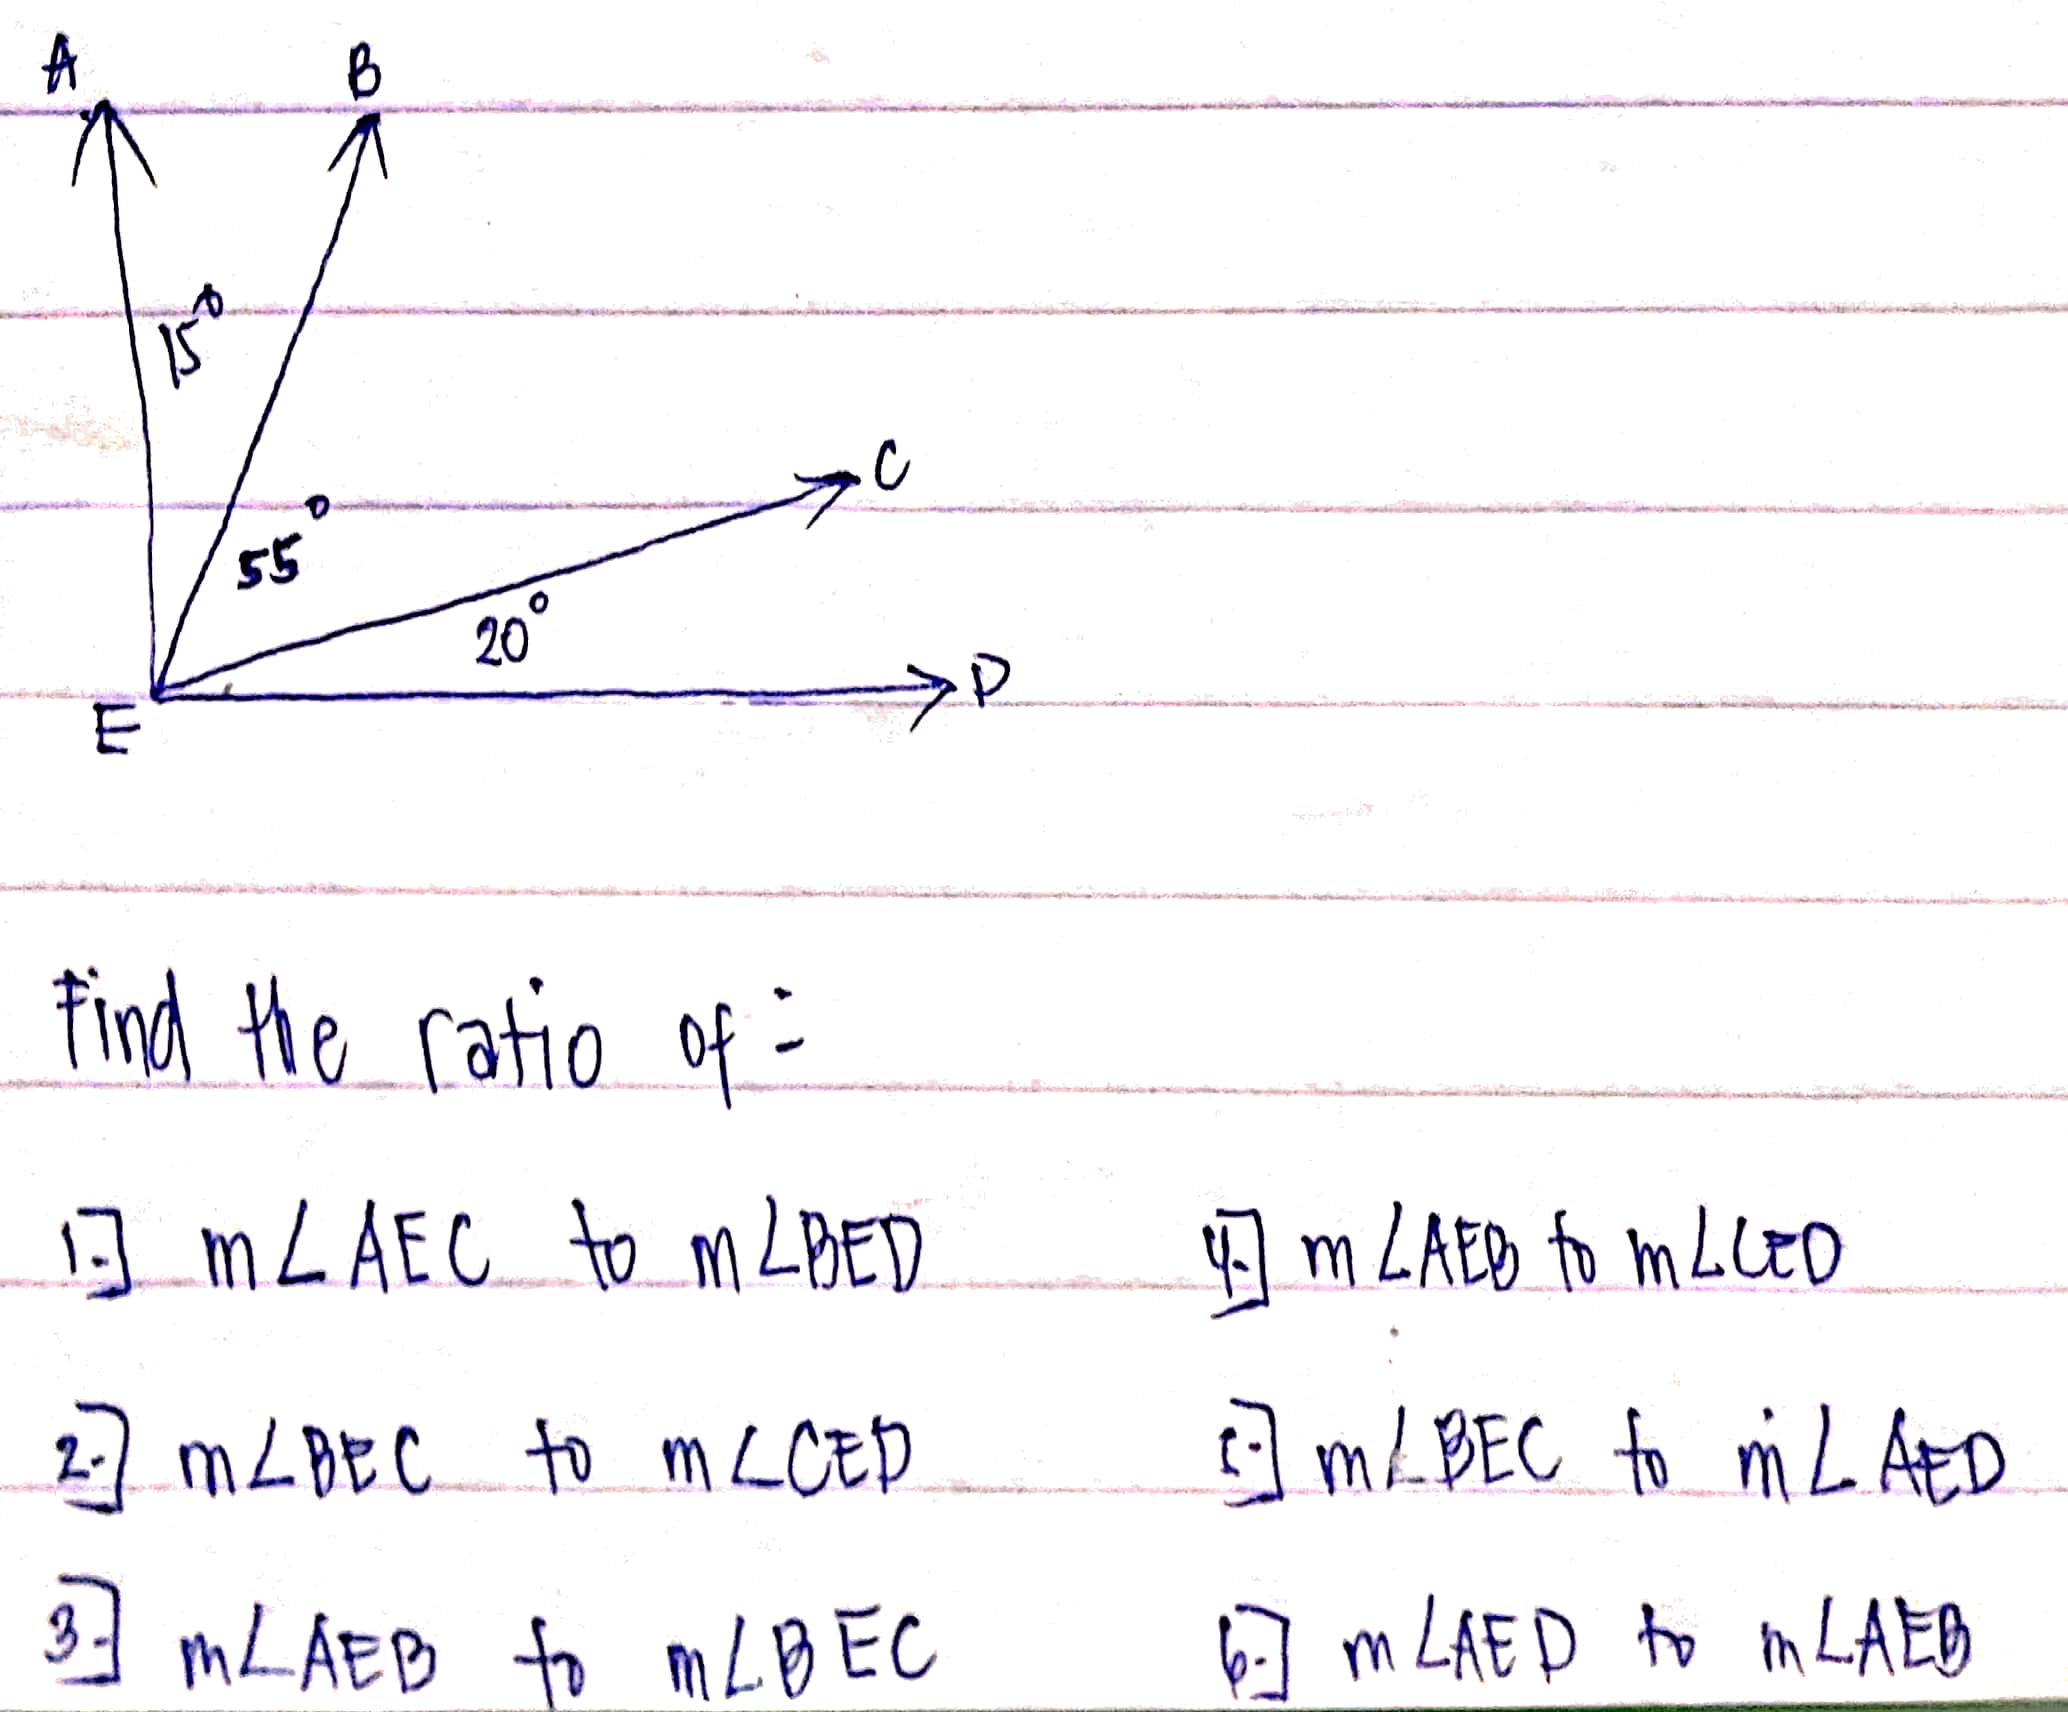 A B
15°
C
55°
20°
D
E
Find the ratio of:
1.] m∠AEC to m∠BED 4.] m∠AEB to m∠CED
2.] m∠BEC to m∠CED 5.] m∠BEC to m∠AED
3.] m∠AEB to m∠BEC 6.] m∠AED to m∠AEB